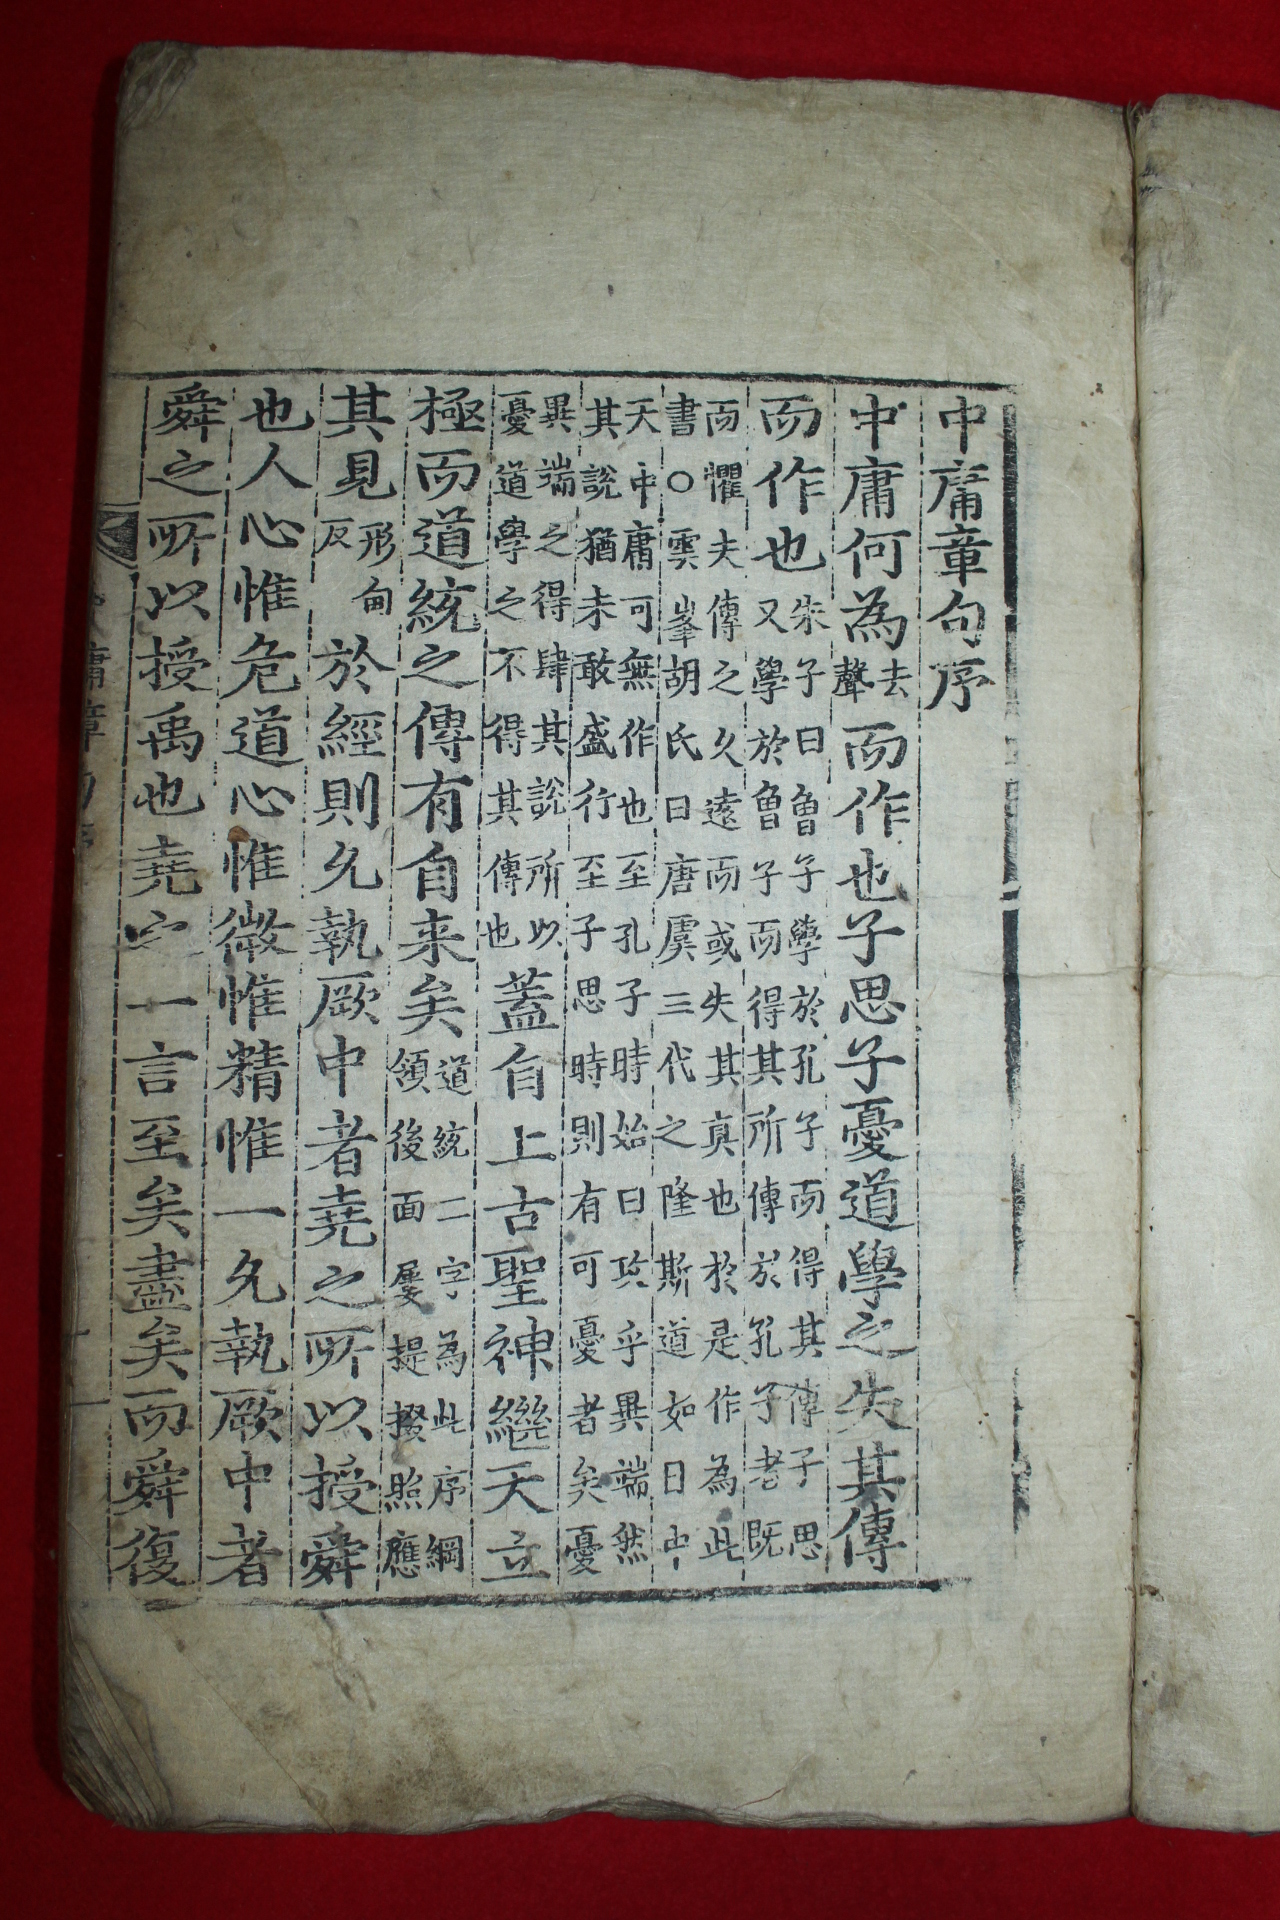 中庸章句序
中庸何為去聲而作也子思子憂道學之失其傳
而作也朱子曰曾子學於孔子而得其傳子思
又學於曾子而得其所傳於孔子者既
而懼夫傳之久遠而或失其真也於是作為此
書○雲峯胡氏曰唐虞三代之隆斯道如日中
天中庸可無作也至孔子時始曰攻乎異端然
其說猶未敢盛行至子思時則有可憂者矣憂
異端之得肆其說所以
憂道學之不得其傳也蓋自上古聖神繼天立
極而道統之傳有自来矣道統二字為此序綱
領後面屢提掇照應
其見形甸反於經則允執厥中者堯之所以授舜
也人心惟危道心惟微惟精惟一允執厥中者
舜之所以授禹也堯之一言至矣盡矣而舜復
庸章